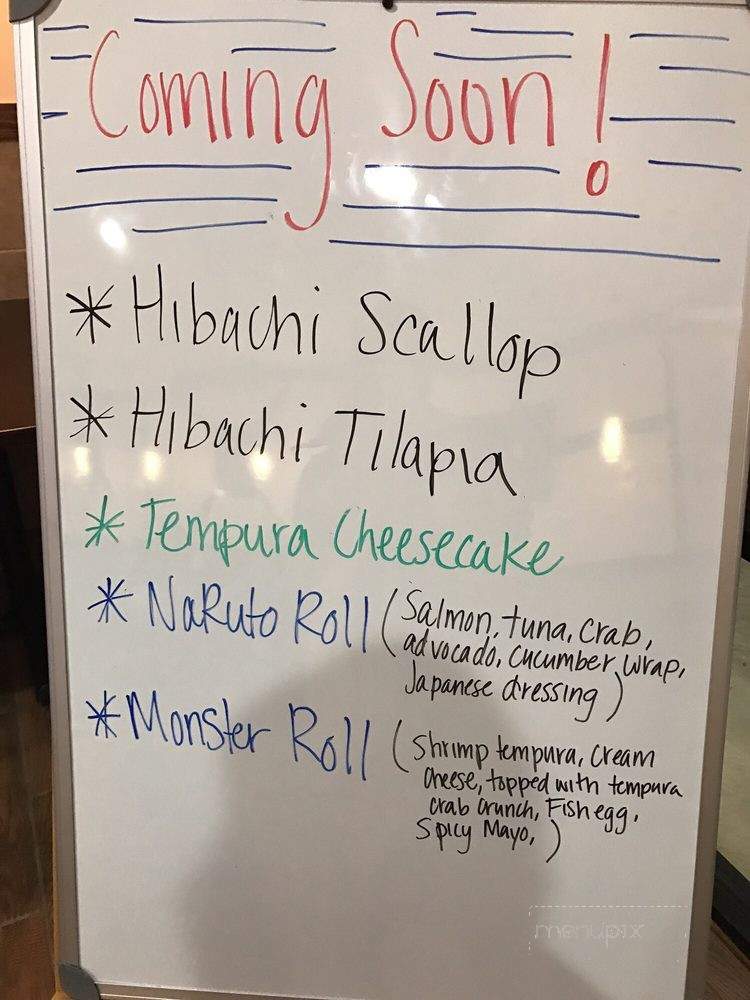 Coming Soon!
* Hibachi Scallop
* Hibachi Tilapia
* Tempura Cheesecake
* NaRuto Roll (Salmon, tuna, crab,
advocado, cucumber wrap,
Japanese dressing)
* Monster Roll (Shrimp tempura, cream
cheese, topped with tempura
crab crunch, Fish egg,
Spicy Mayo,)
menupix